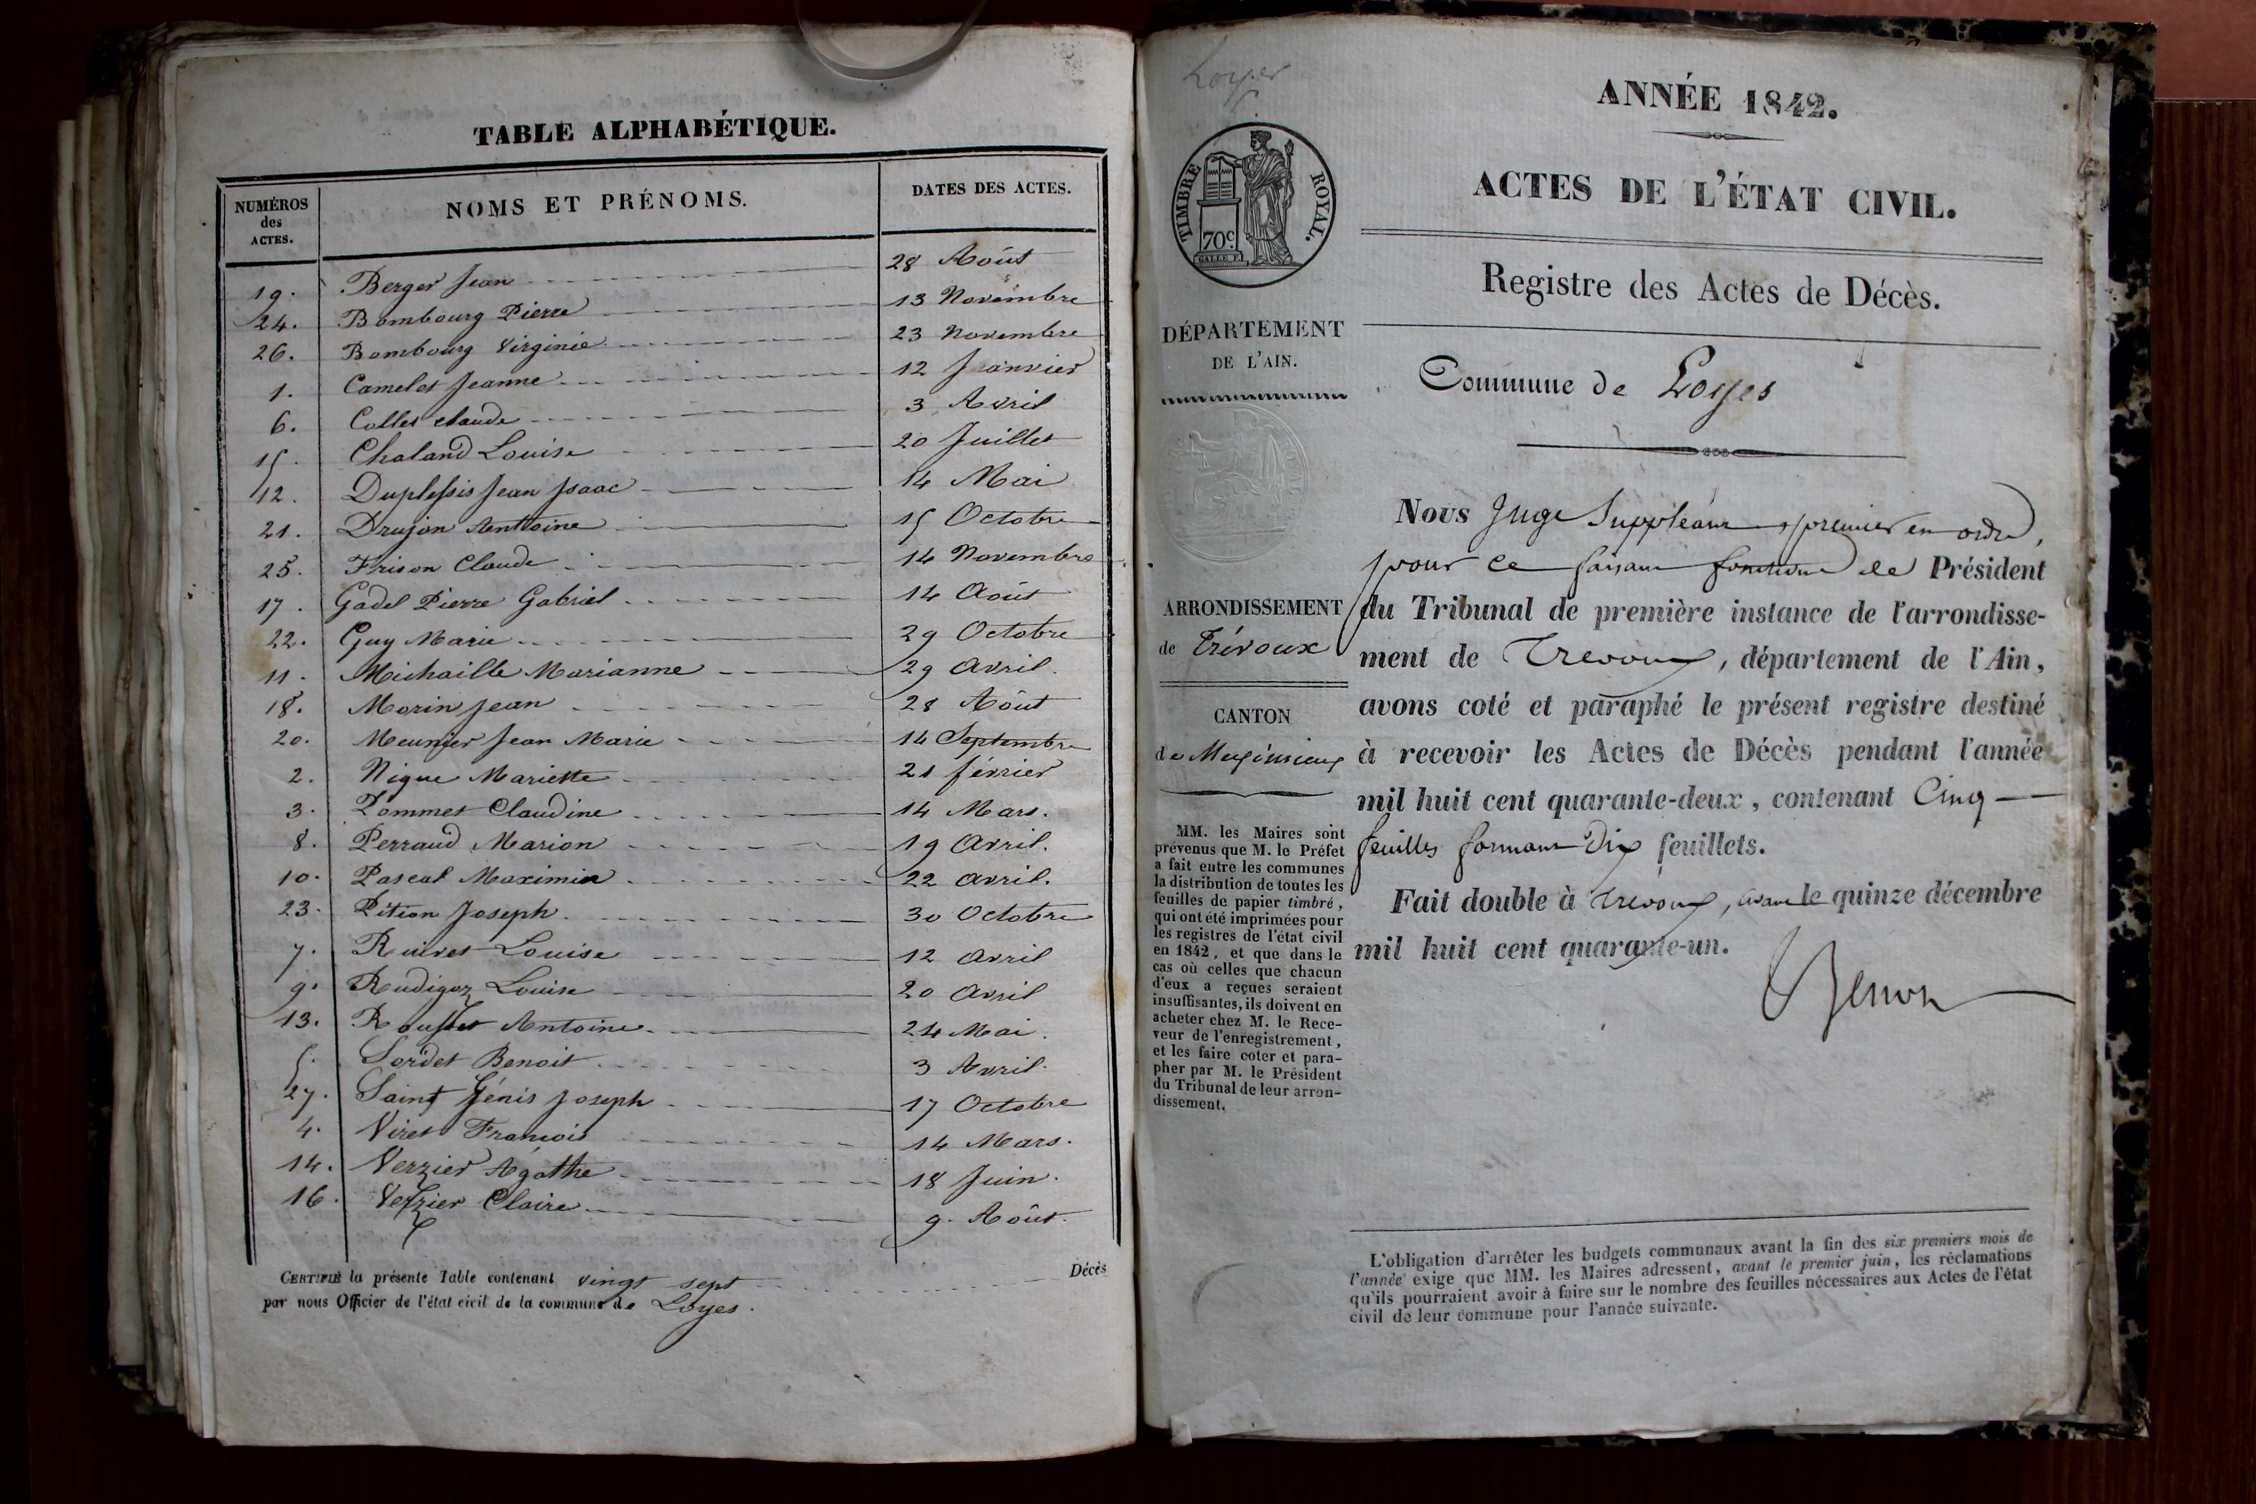 TABLE ALPHABÉTIQUE.
NUMÉROS des ACTES. NOMS ET PRÉNOMS. DATES DES ACTES.
19. Berger Jean 28 Août
24. Bombourg Pierre 13 Novembre
26. Bombourg Virginie 23 Novembre
1. Camelet Jeanne 12 Janvier
6. Collet Claude 3 Avril
15. Chaland Louise 20 Juillet
12. Duplessis Jean Isaac 14 Mai
21. Drujon Anthoine 15 Octobre
25. Frison Claude 14 Novembre
17. Gadel Pierre Gabriel 14 Août
22. Guy Marie 29 Octobre
11. Michaille Marianne 29 Avril.
18. Morin Jean 28 Août
20. Meunier Jean Marie 14 Septembre
2. Nique Mariette 21 février
3. Pommet Claudine 14 Mars.
8. Perraud Marion 19 Avril.
10. Pascal Maximin 22 Avril.
23. Pition Joseph 30 Octobre
7. Ruivet Louise 12 Avril
9. Rudigoz Louise 20 Avril
13. Rousset Antoine 24 Mai.
5. Sordet Benoit 3 Avril.
27. Saint Génis Joseph 17 Octobre
4. Viret François 14 Mars.
14. Verzier Agathe 18 Juin.
16. Verzier Claire 9. Août.
CERTIFIÉ la présente Table contenant vingt sept Décès
par nous Officier de l'état civil de la commune de Loyes.
Loyes
TIMBRE ROYAL.
70c.
DÉPARTEMENT
DE L'AIN.
ARRONDISSEMENT
de Trévoux
CANTON
de Meximieux
MM. les Maires sont
prévenus que M. le Préfet
a fait entre les communes
la distribution de toutes les
feuilles de papier timbré,
qui ont été imprimées pour
les registres de l'état civil
en 1842, et que dans le
cas où celles que chacun
d'eux a reçues seraient
insuffisantes, ils doivent en
acheter chez M. le Rece-
veur de l'enregistrement,
et les faire coter et para-
pher par M. le Président
du Tribunal de leur arron-
dissement.
ANNÉE 1842.
ACTES DE L'ÉTAT CIVIL.
Registre des Actes de Décès.
Commune de Loyes
Nous Juge Suppléant, premier en ordre,
pour ce faisant fonctions de Président
du Tribunal de première instance de l'arrondisse-
ment de Trévoux, département de l'Ain,
avons coté et paraphé le présent registre destiné
à recevoir les Actes de Décès pendant l'année
mil huit cent quarante-deux, contenant Cinq
feuilles formant Dix feuillets.
Fait double à Trévoux, avant le quinze décembre
mil huit cent quarante-un.
L'obligation d'arrêter les budgets communaux avant la fin des six premiers mois de
l'année exige que MM. les Maires adressent, avant le premier juin, les réclamations
qu'ils pourraient avoir à faire sur le nombre des feuilles nécessaires aux Actes de l'état
civil de leur commune pour l'année suivante.